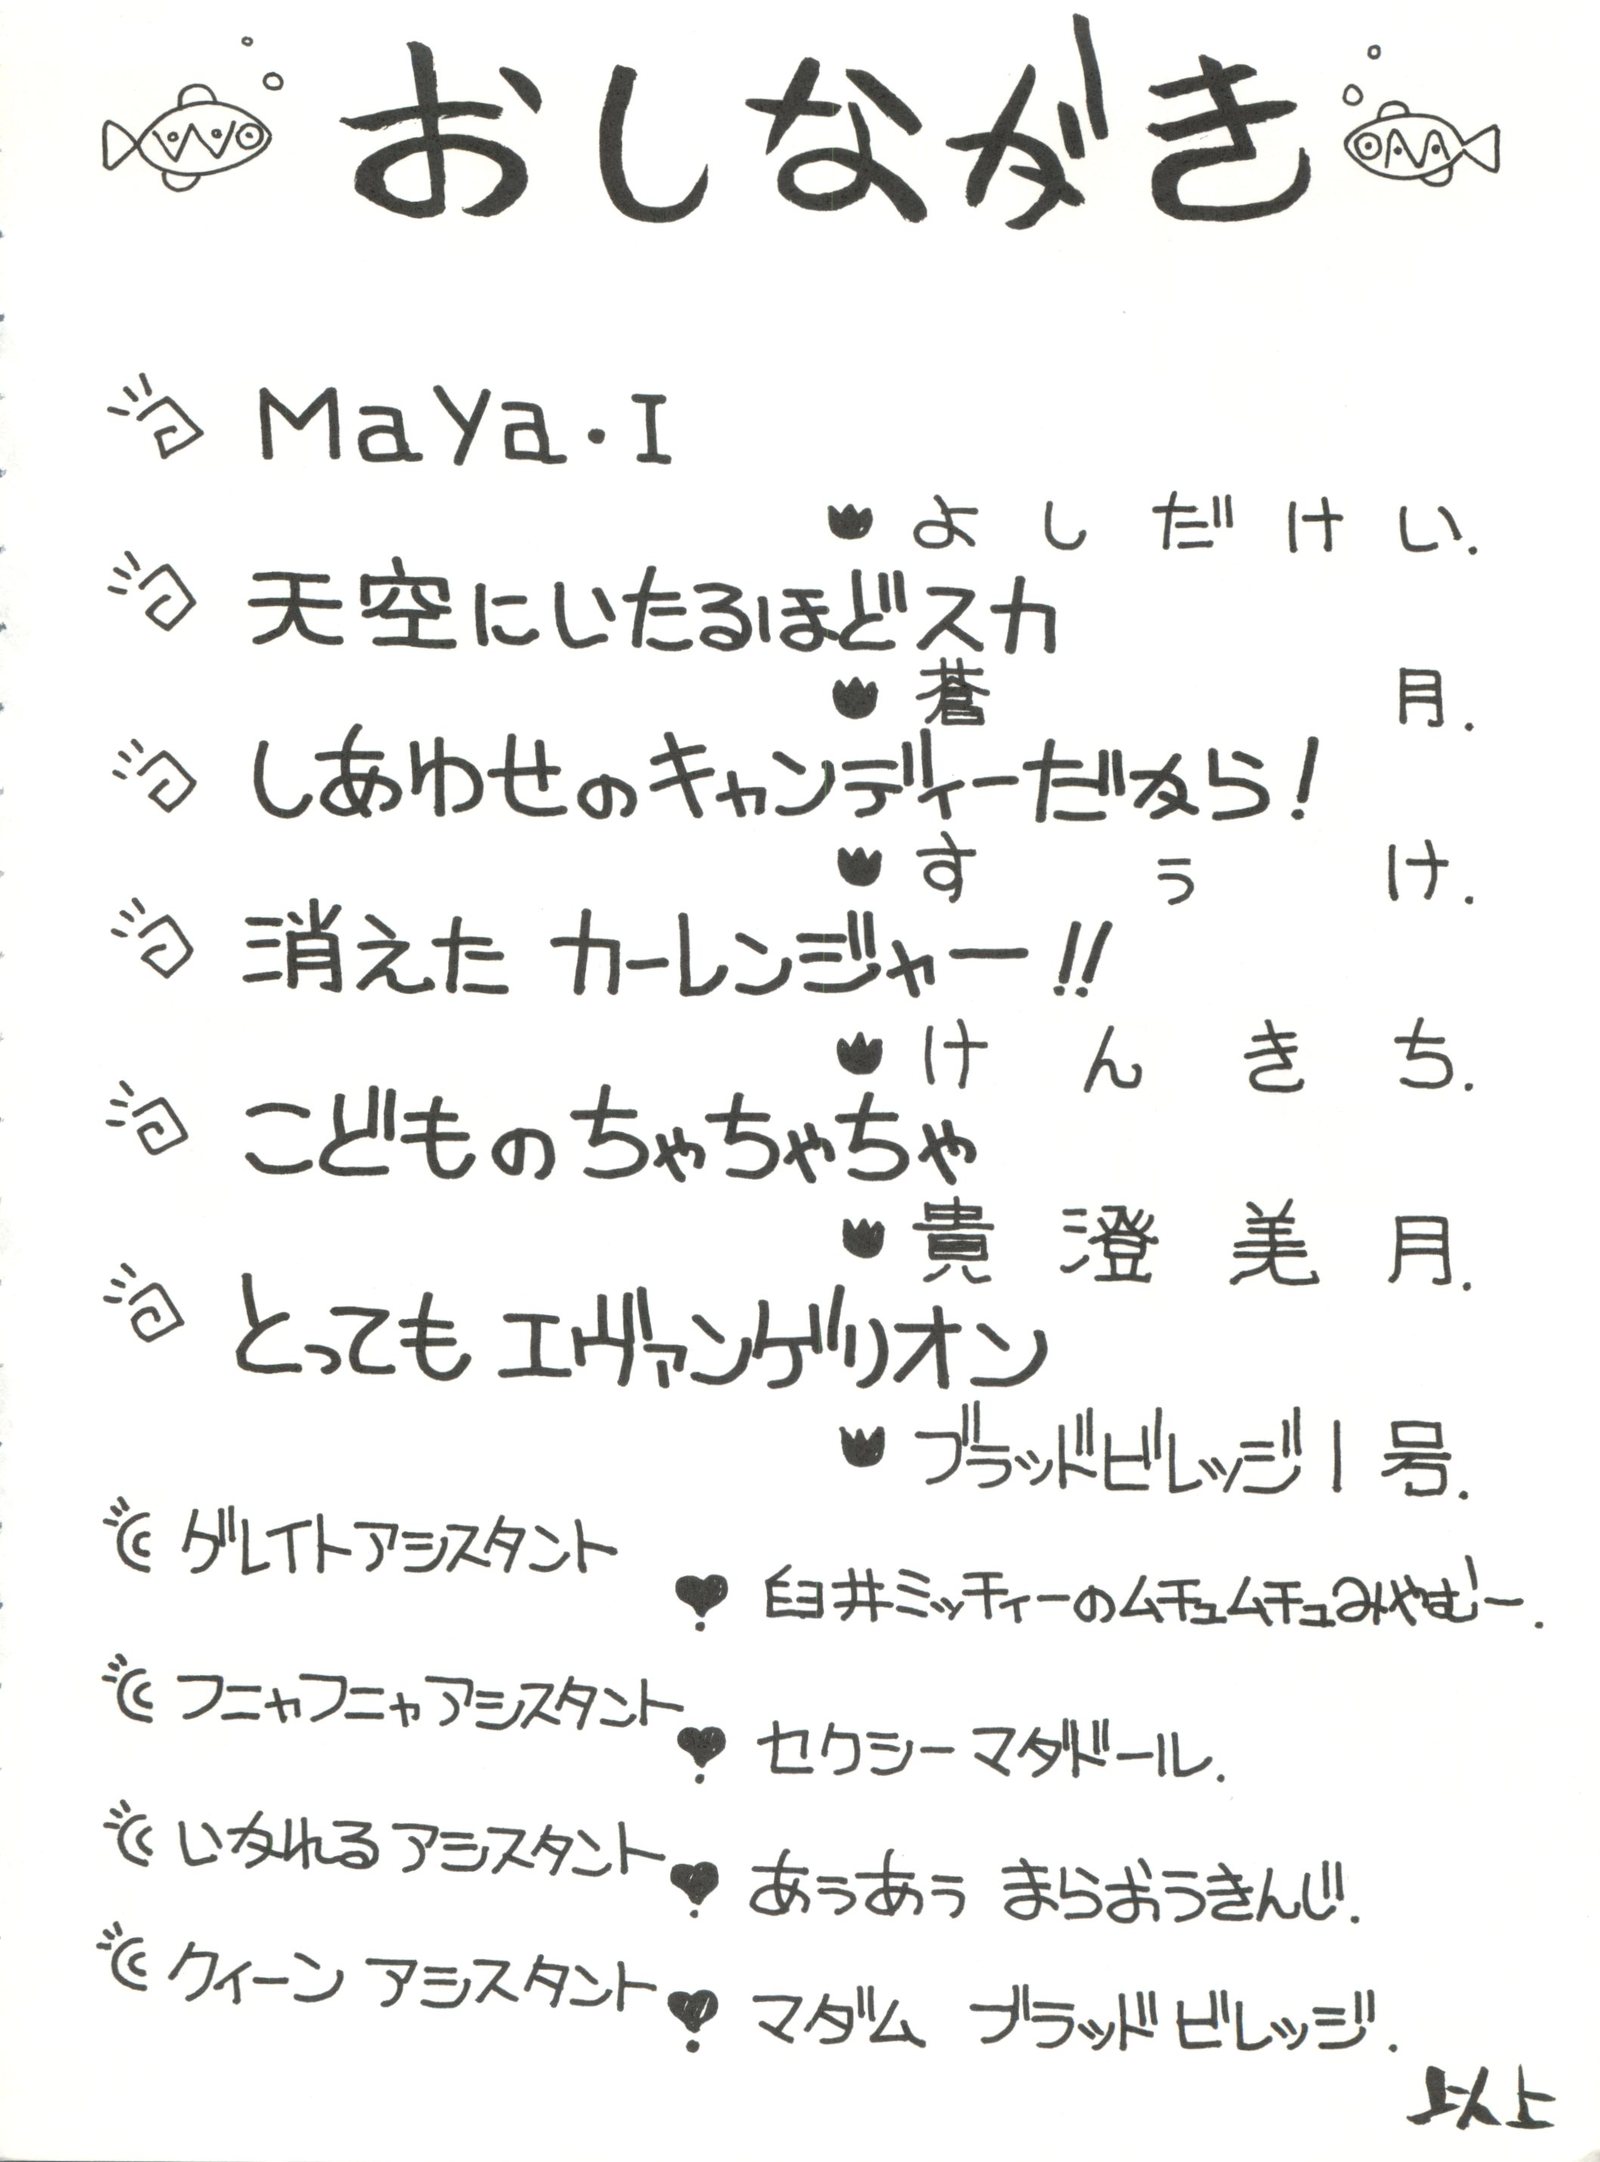 おしながき
MaYa・I
よしだけい.
天空にいたるほどスカ
蒼月.
しあわせのキャンディーだなら!
すぅけ.
消えた カーレンジャー!!
けんきち.
こどものちゃちゃちゃ
貴澄美月.
とってもエヴァンゲリオン
ブラッドビレッジ1号.
グレイトアシスタント
臼井ミッチィーのムチュムチュみやむー.
フニャフニャアシスタント
セクシーマタドール.
いなれるアシスタント
あぅあぅ まらおうきんじ.
クィーン アシスタント
マダム ブラッドビレッジ.
以上